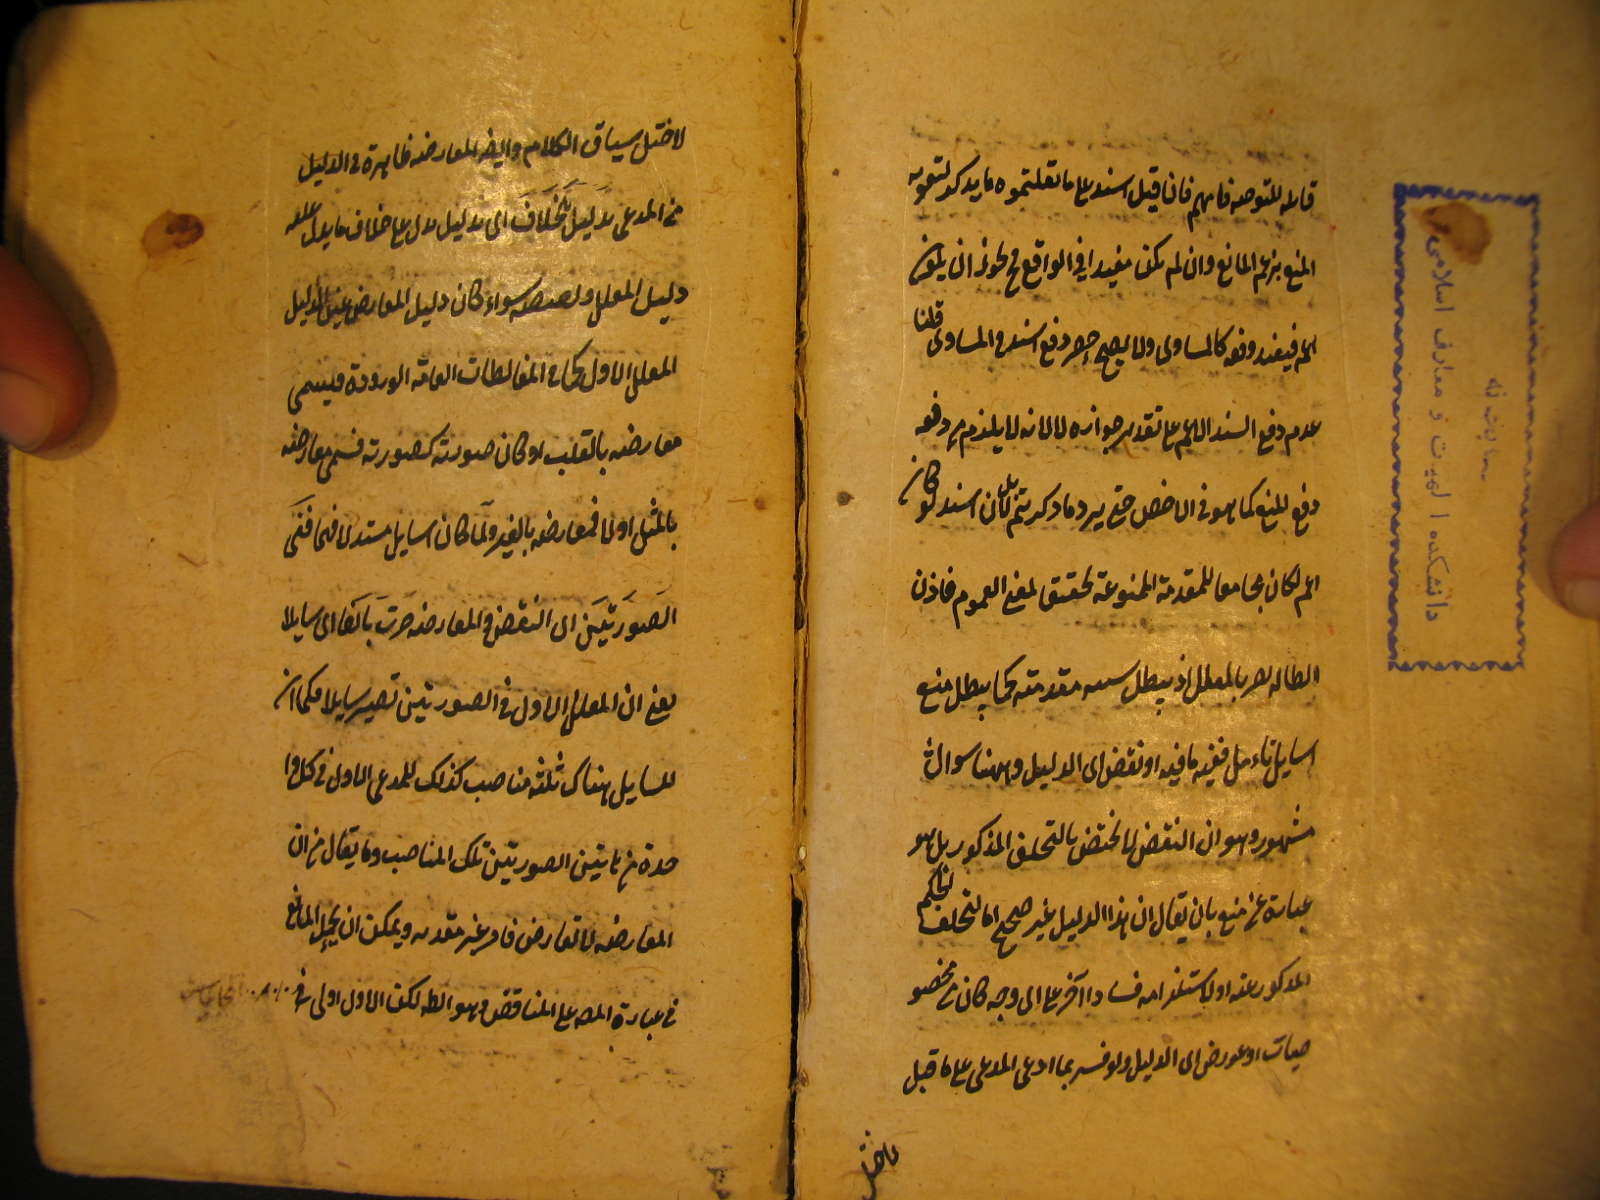 قابله للتوجيه فافهم فان قيل السند على ما نقلتموه ما يذكر لتقوية
المنع بزعم المانع وان لم يكن مفيدا في الواقع فح يجوز ان يكون
اعم فيفيد دفعه كالمساوى ولا يصح حصر دفع السند في المساوى قلنا
عدم دفع السند الاعم على تقدير جوازه لا لانه لا يلزم من دفعه
دفع المنع كما هو في الاخص حتى يرد ما ذكرتم بل لان السند لو كان
اعم لكان مجامعا للمقدمة الممنوعة لتحقق العموم فاذن
ابطاله يضر بالمعلل اذ يبطل مقدمته كما يبطل منع
السايل تامل ففيه ما فيه او نقض اى الدليل وههنا سوال
مشهور وهو ان النقض لا يختص بالتخلف المذكور بل هو
عبارة عن منع بان يقال ان هذا الدليل غير صحيح اما لتخلف الحكم
المذكور عنه او لاستلزامه فسادا آخر على اى وجه كان من خصو
صيات او عورض اى الدليل ولو فسر بما ادعى المدعى على ما قيل
لاختل سياق الكلام وايضا المعارضة ظاهرة في الدليل
من المدعى بدليل الخلاف اى بدليل دل على خلاف ما يدل عليه
دليل المعلل سواء كان دليل المعارض عين الدليل
المعلل الاول كما في المغالطات العامة الورود فيسمى
معارضه بالقلب او كان صورته كصورته فسمى معارضه
بالمثل او لا فمعارضه بالغير ولما كان السايل مستدلا فيهما ففى
الصورتين اى النقض والمعارضه صرت مانعا اى سايلا
يعنى ان المعلل الاول في الصورتين تصير سايلا فكما ان
للسايل هناك ثلثة مناصب كذلك للمدعى الاول في كل وا
حدة من هاتين الصورتين تلك المناصب وما يقال من ان
المعارضه لا تعارض فامر غير معتد به ويمكن ان يحمل المانع
في عبارة المصه على المناقض وهو الظه لكن الاول اولى
دانشكده الهيت و معارف اسلامى